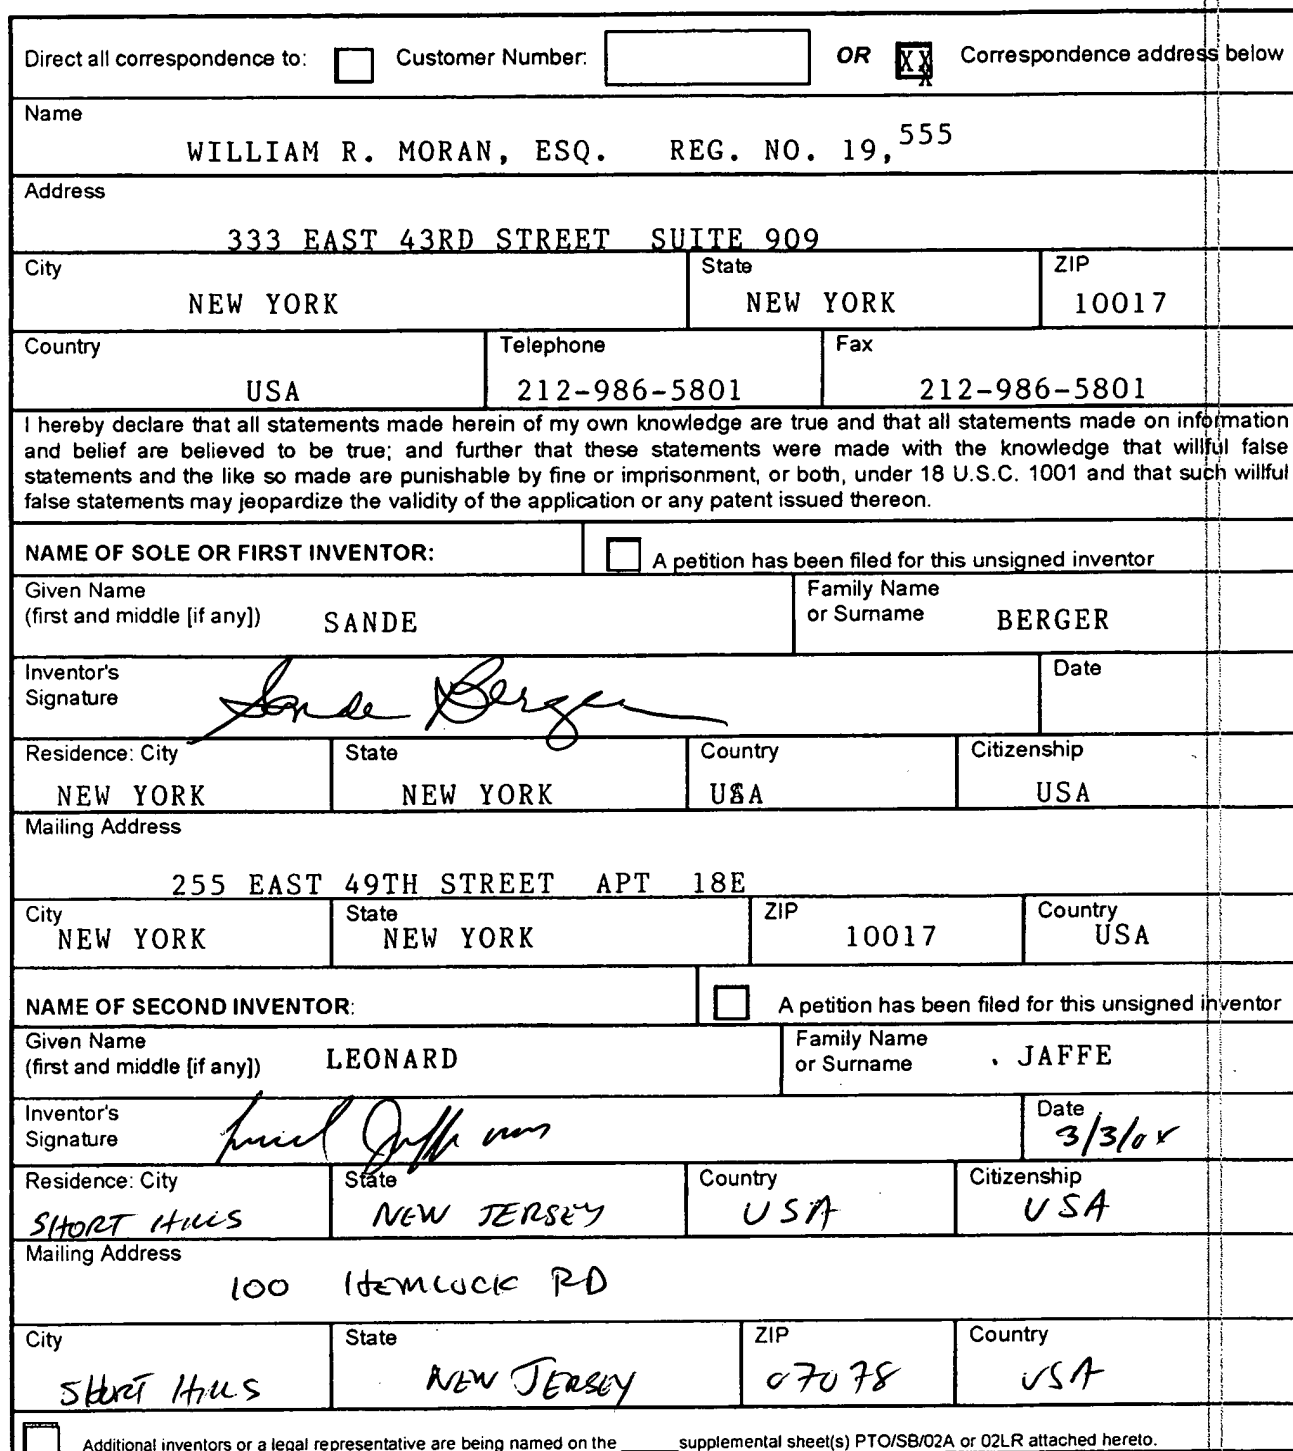 Direct all correspondence to: Customer Number: OR XX Correspondence address below
X
Name
WILLIAM R. MORAN, ESQ. REG. NO. 19,555
Address
333 EAST 43RD STREET SUITE 909
City State ZIP
NEW YORK NEW YORK 10017
Country Telephone Fax
USA 212-986-5801 212-986-5801
I hereby declare that all statements made herein of my own knowledge are true and that all statements made on information
and belief are believed to be true; and further that these statements were made with the knowledge that willful false
statements and the like so made are punishable by fine or imprisonment, or both, under 18 U.S.C. 1001 and that such willful
false statements may jeopardize the validity of the application or any patent issued thereon.
NAME OF SOLE OR FIRST INVENTOR: A petition has been filed for this unsigned inventor
Given Name Family Name
(first and middle [if any]) SANDE or Surname BERGER
Inventor's Date
Signature Sande Berger
Residence: City State Country Citizenship
NEW YORK NEW YORK USA USA
Mailing Address
255 EAST 49TH STREET APT 18E
City State ZIP Country
NEW YORK NEW YORK 10017 USA
NAME OF SECOND INVENTOR: A petition has been filed for this unsigned inventor
Given Name Family Name
(first and middle [if any]) LEONARD or Surname . JAFFE
Inventor's Date
Signature Jaffe 3/3/04
Residence: City State Country Citizenship
SHORT HILLS NEW JERSEY USA USA
Mailing Address
100 HEMLOCK RD
City State ZIP Country
SHORT HILLS NEW JERSEY 07078 USA
Additional inventors or a legal representative are being named on the _____ supplemental sheet(s) PTO/SB/02A or 02LR attached hereto.